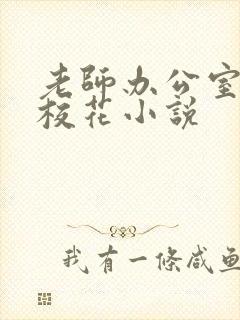 老師办公室
校花小説
我有一條咸鱼